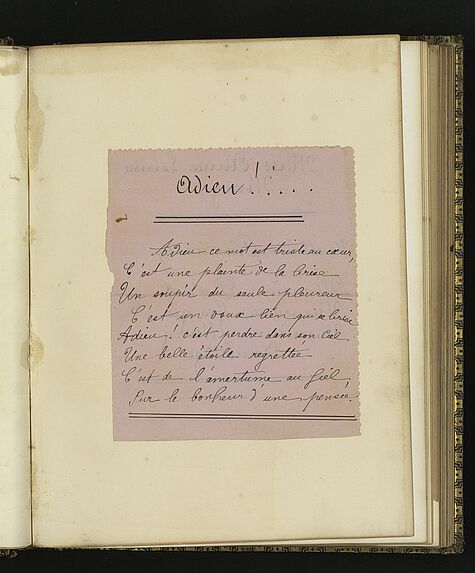 Adieu!.....
Adieu ce mot est triste au cœur,
C'est une plainte de la brise
Un soupir du saule pleureur
C'est un doux lien qui se brise
Adieu! c'est perdre dans son Ciel
Une belle étoile regrettée
C'est de l'amertume au fiel,
Sur le bonheur d'une pensée.